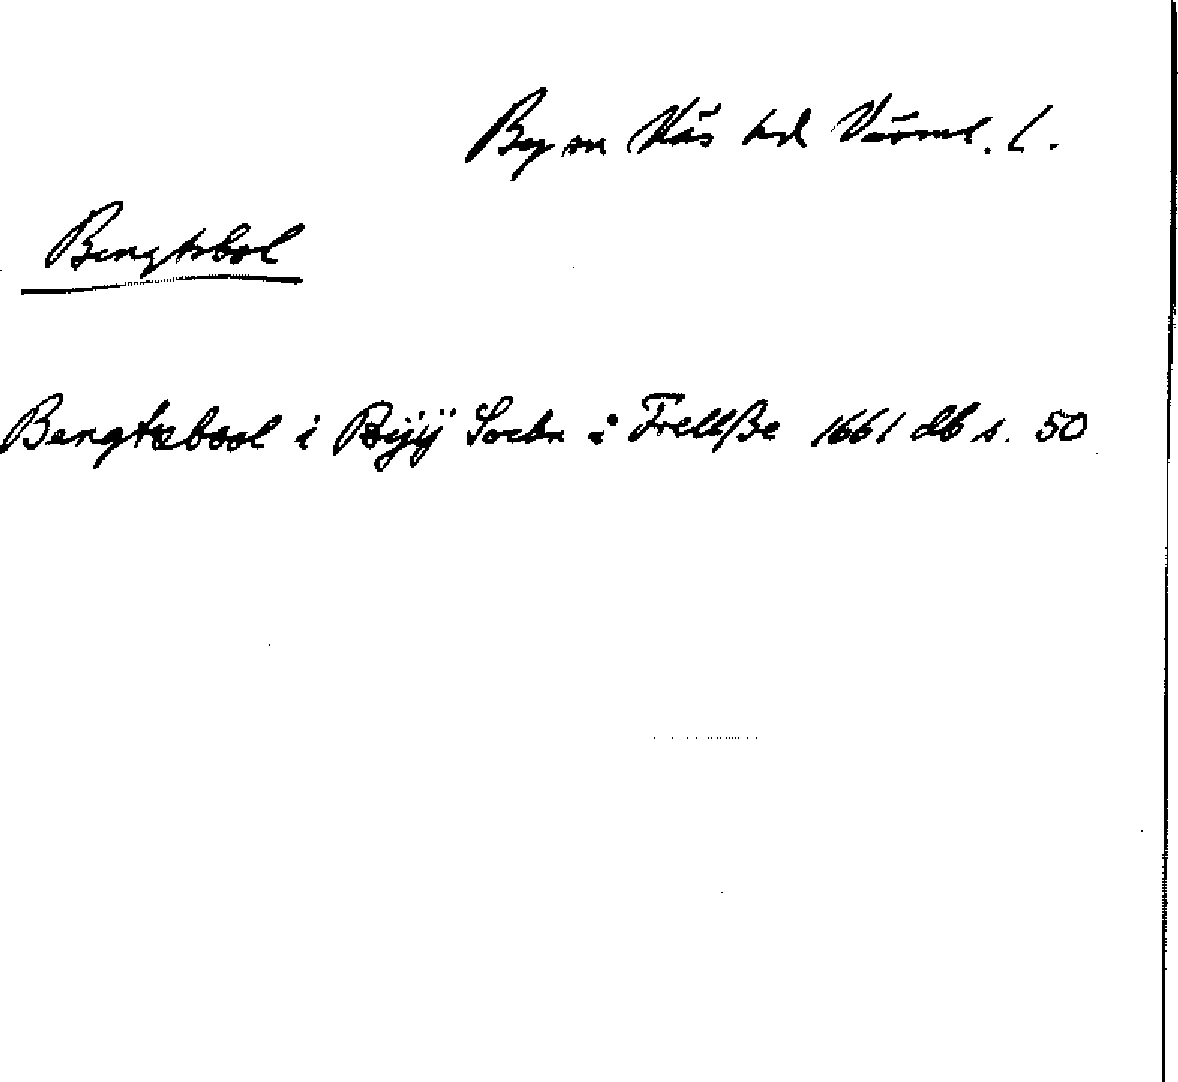 By sn Näs hd Värml. l.
Bengtsbol
Bengtzbool i Bÿÿ Sockn i Frellße 1661 db s. 50